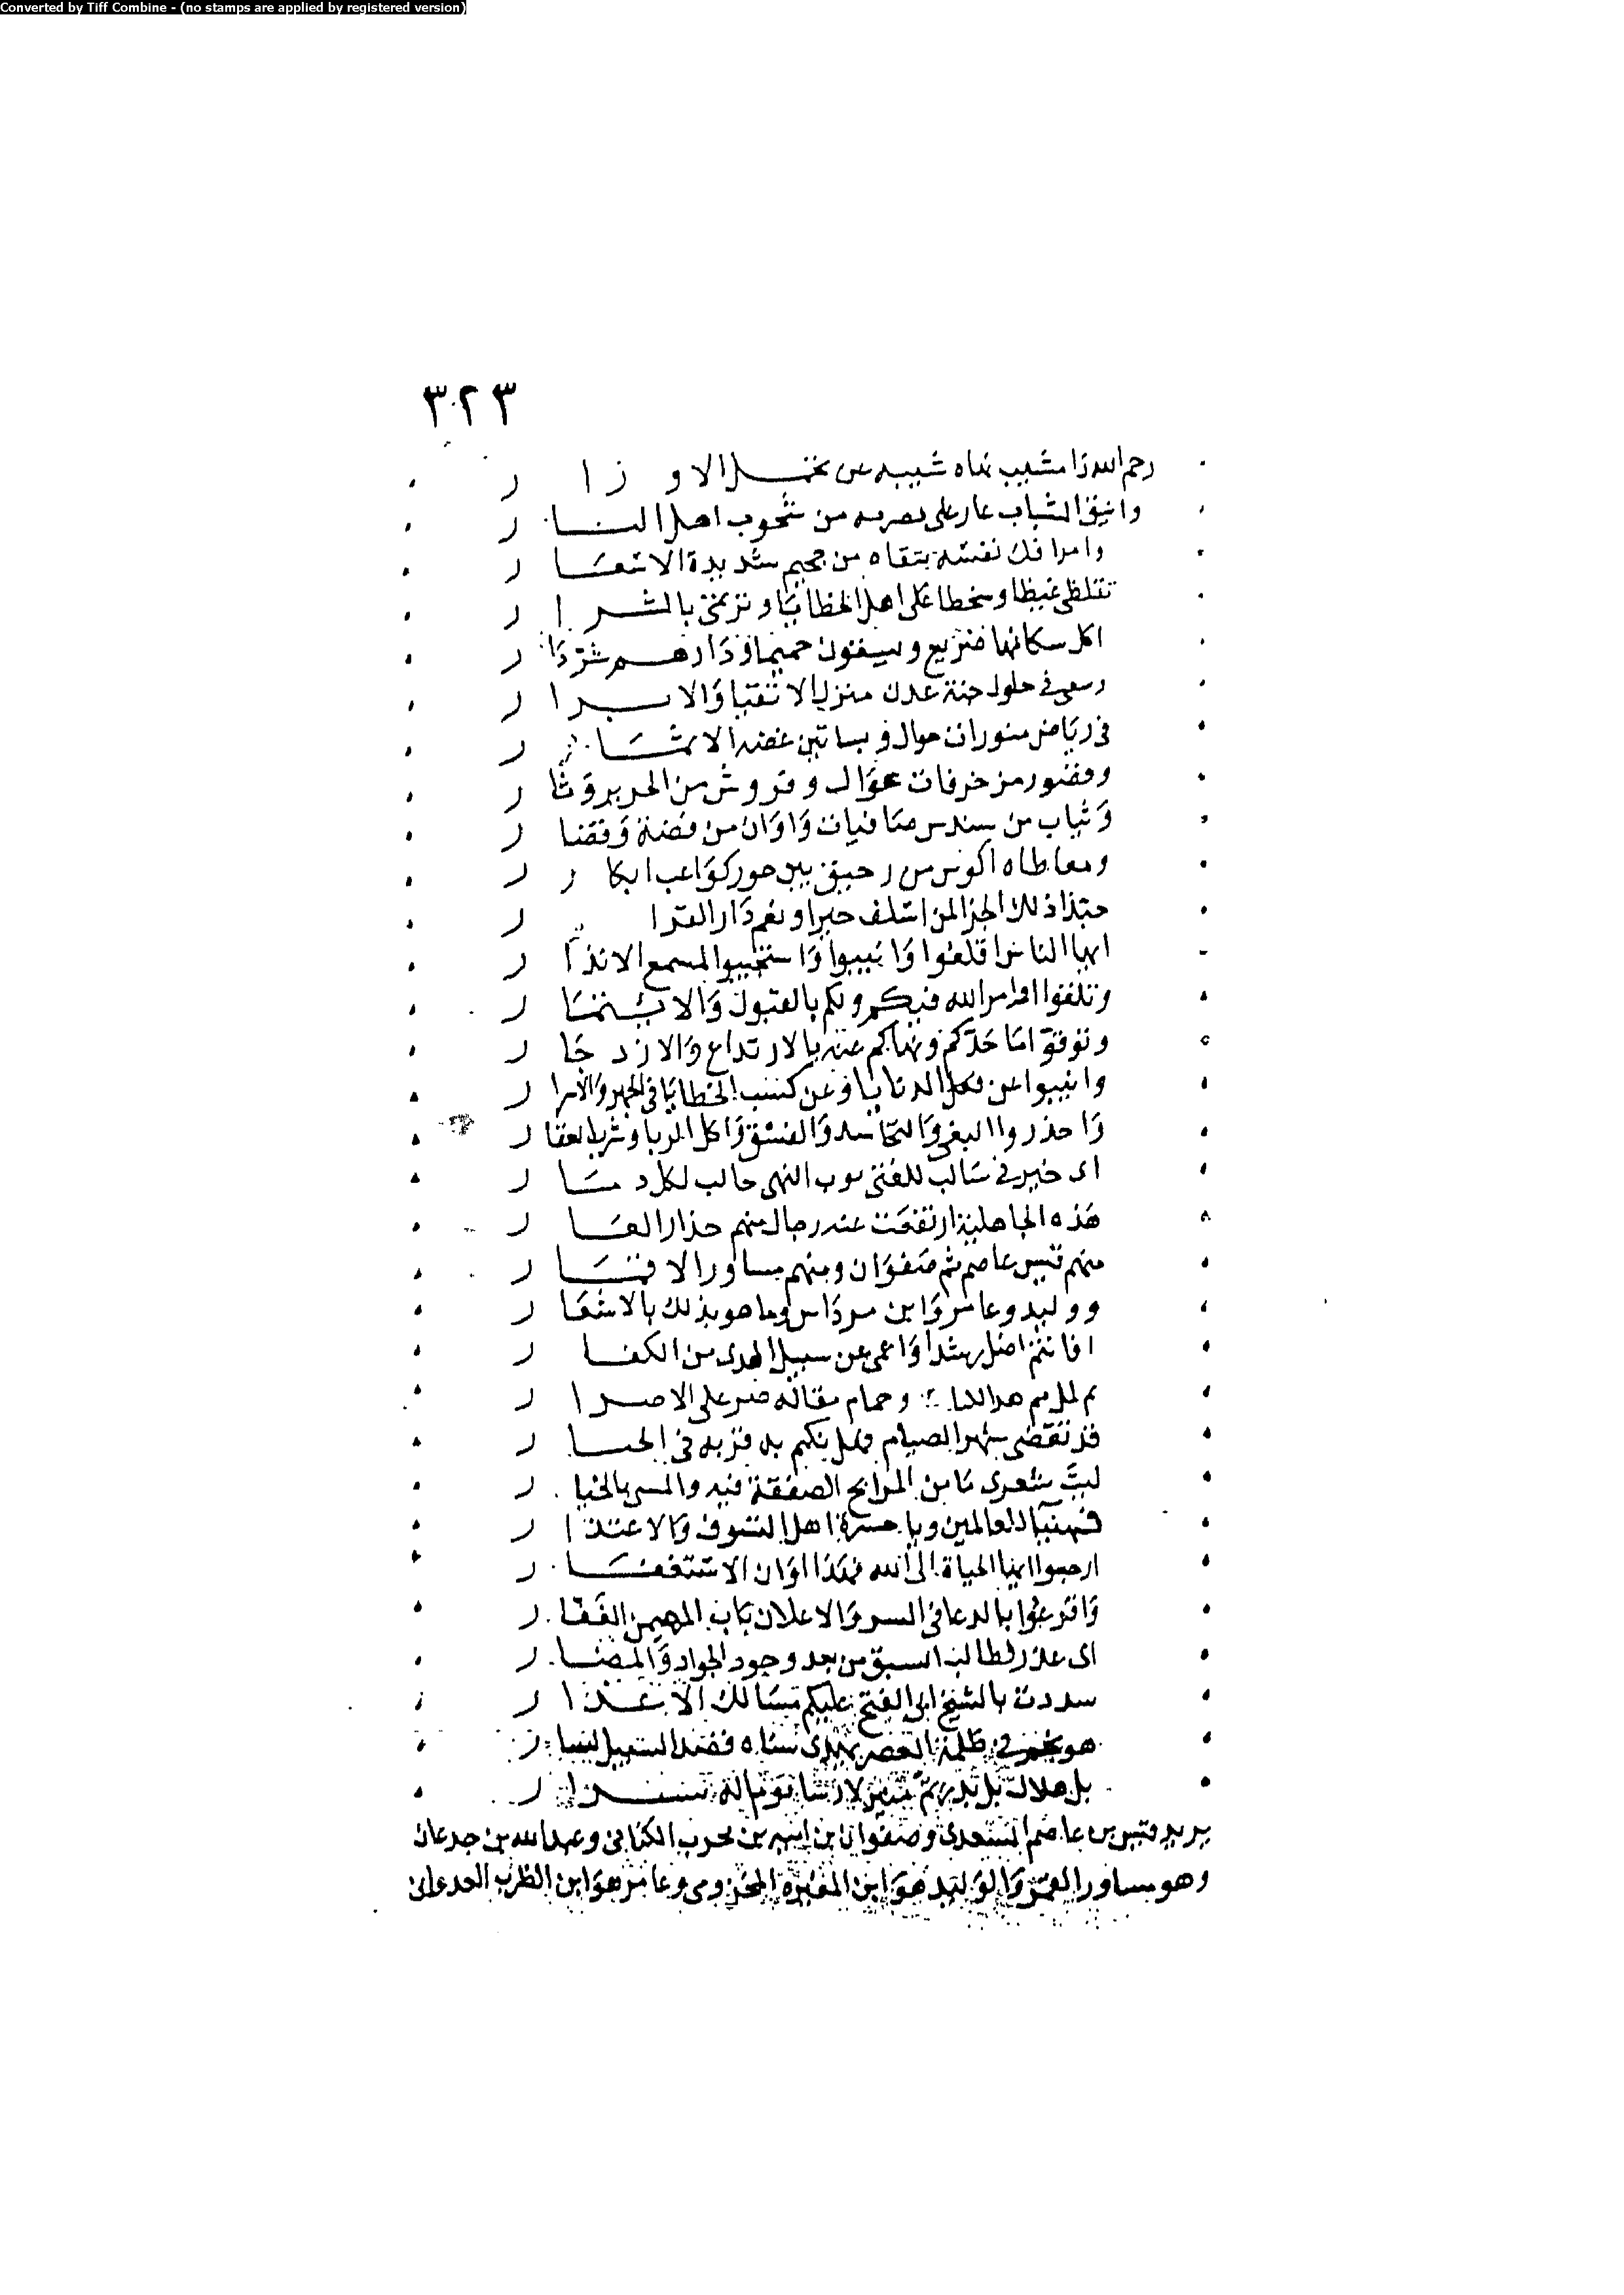 Converted by Tiff Combine - (no stamps are applied by registered version)
٣٢٣
رحم الله ذا مشيب نهاه شيبه عن تحمل الاوزار
وانيق الشباب عار على من شحوب اهل النار
وامرا فك نفسه بتقاه من جحيم شديدة الاسعار
تتلظى غيظا وسخطا على اهل الخطايا وترتمى بالشرار
اكل سكانها ضريع ويسقون حميما ودارهم شر دار
وسعى فى حلول جنة عدن منزل الاتقيا والابرار
فى رياض منورات حوال وبساتين غضه الاثمار
وقصور مزخرفات عوال وفروش من الحرير وثار
وثياب من سندس صافيات واوان من فضة ونضار
ومعاطاه اكوس من رحيق بين حور كواعب ابكار
حبذا ذلك الجزا لمن اسلف خيرا ونعم دار القرار
ايها الناس اقلعوا وانيبوا واستجيبوا لمسمع الانذار
وتلقوا اوامر الله فيكم ولكم بالقبول والايتمار
وتوقوا ما حدكم ونهاكم عنه بالارتداع والازدجار
وانيبوا عن فعل الدنايا وعن كسب الخطايا فى الجهر والاسرار
واحذروا البغى والتحاسد والفسق واكل الربا وشرب العقار
اى خير فى سالب للفتى ثوب النهى جالب لكل دمار
هذه الجاهلية ارتفعت عنه رجال منهم حذار العار
منهم قيس عاصم ثم صفوان ومنهم مساور الاقمار
ووليد وعامر وابن مرداس وما هو بذلك بالاشعار
افانتم اضل رشدا واعمى عن سبيل الهدى من الكفار
على الاصرار
قد تقضى شهر الصيام وهل بكم به قربه فى الحسار
ليت شعرى من المرابح الصفقة فيه والمسى بالخيار
فهنيئا للعالمين ويا حسرة اهل التسوف والاعتذار
ارجعوا ايها الحياة الى الله فهذا اوان الاستغفار
واقرعوا بالدعا فى السر والاعلان باب المهيمن الغفار
اى عذر لطالب السبق من بعد وجود الجواد والمضمار
سددت بالشيخ ابى الفتح عليكم مسالك الاعذار
هو نجم فى ظلمة العصر يهدى سناه قصد السبيل لسار
بل هلال بل بدر تم
يريد قيس بن عاصم السعدى وصفوان بن اميه بن محرب الكنانى وعبد الله بن جدعان
وهو مساور القمر والوليد هو ابن المغيرة المخزومى وعامر هو ابن الظرب العدوانى